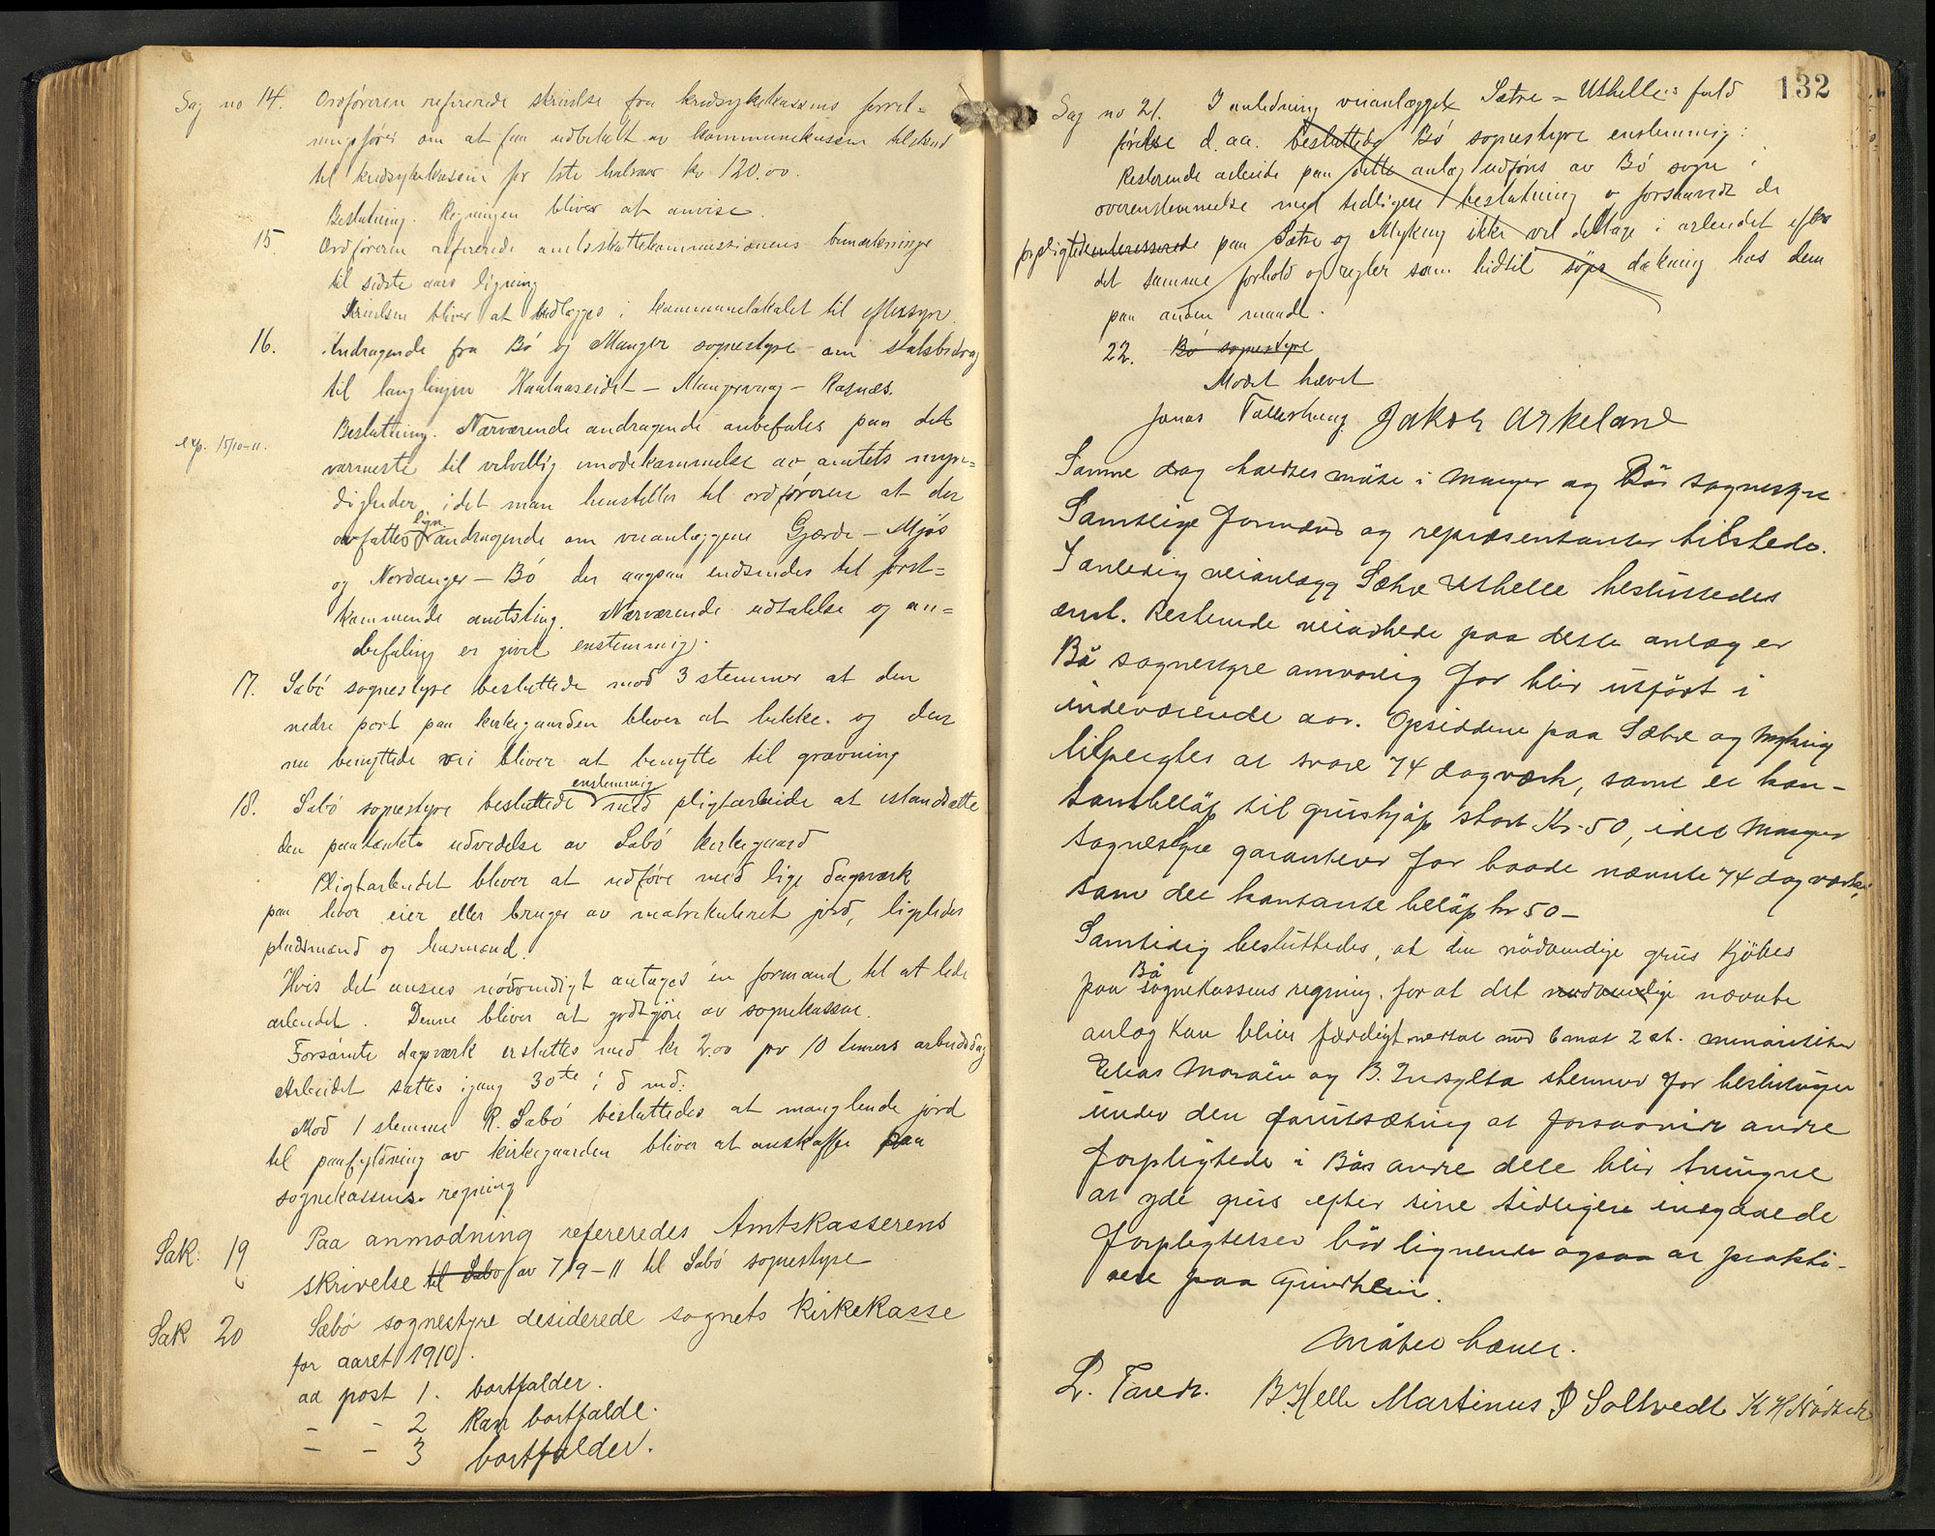 Sag no 14. Ordføreren refererede skrivelse fra kredsykekassens forret-
ningsfører om at faa udbetalt av kommunekassen tilskud
til kredsykekassen for 1ste halvaar kr 120.00.
Beslutning. Regningen bliver at anvise.
15 Ordføreren refererede amtsskattekommissionens bemærkninger
til sidste aars ligning
Skrivelsen bliver at udlægges i kommunelokalet til eftersyn.
16. Andragende fra Bö og Manger sognestyre om statsbidrag
til langlinjen Haalaaseidet - Mangervaag - Ragnæs.
exp. 15/10-11.
Beslutning. Nærværende andragende anbefales paa det
varmeste til velvillig imødekommelse av amtets myn-
digheder, idet man henstiller til ordføreren at der
avfattes lign andragende om veianlæggene Gjærde - Mjös
og Nordanger - Bö der ogsaa indsendes til først-
kommende amtsting. Nærværende udtalelse og an-
befaling er givet enstemmig.
17. Sæbö sognestyre besluttede mod 3 stemmer at den
nedre port paa kirkegaarden bliver at lukke. og den
nu benyttede vei bliver at benytte til gravning
18. Sæbö sognestyre besluttede enstemmig med pligtarbeide at istandsætte
den paatænkte udvidelse av Sæbö kirkegaard
Pligtarbeidet bliver at udføre med lige dagværk
paa hver eier eller bruger av matrikuleret jord, ligeledes
pladsmænd og husmænd.
Hvis det ansees nödvendigt antages en formand til at lede
arbeidet. Denne bliver at godtgjøre av sognekassen.
Forsömte dagsværk erstattes med kr 2.00 pr 10 timers arbeidsdag
Arbeidet sættes igang 30te i d md.
Mod 1 stemme R. Sæbö besluttedes at manglende jord
til paafyldning av kirkegaarden bliver at anskaffe paa
sognekassens regning
Sak: 19 Paa anmodning refereredes Amtskasserens
skrivelse til Sæbö av 7/9-11 til Sæbö sognestyre
Sak 20 Sæbö sognestyre desiderede sognets kirkekasse
for aaret 1910.
ad post 1. bortfalder.
- - 2 kan bortfalde.
- - 3 bortfalder.
132
Sag no 21. I anledning veianlægget Sætre - Uthelle's fuld
førelse d. aa. besluttede Bö sognestyre enstemmig:
Resterende arbeide paa dette anlæg udføres av Bö sogn i
overenstemmelse med tidligere beslutning og forsaavidt de
forpligtede interesserede paa Sætre og Myking ikke vil deltage i arbeidet efter
det samme forhold og regler som hidtil søges dækning hos dem
paa anden maade.
22. Bö sognestyre
Mødet hævet
Jonas Jakob Askeland
Samme dag holdtes möte i Manger og Bös sognestyre
Samtlige formænd og repræsentanter tilstede.
I anledig veianlægg Sætre Uthelle besluttedes
enst. Resterende veiarbede paa dette anlæg er
Bö sognestyre ansvarlig for blir utfört i
indeværende aar. Opsiddene paa Sætre og Myking
tilpligtes at svare 74 dagværk, samt et kon-
tantbelöp til gruskjöp stort Kr. 50, idet Manger
sognestyre garanterer for baade nævnte 74 dagværk,
som det kontante belöp kr 50-
Samtidig besluttedes, at den nödvendige grus kjöbes
paa Bö sognekassens regning. for at det nødvendige nævnte
anlæg kan bliver færdigt. vedtat med 6 mot 2 st. minoriteten
Elias og B. stemmer for beslutningen
under den forutsætning at forsaavidt andre
forpligtede i Bös andre dele blir tvungne
at yde grus efter sine tidligere indgaaede
forpligtelser bör lignende ogsaa at prakti-
sere paa Grindheim.
Mötet hævet.
L. B. Helle Martinus Soltvedt